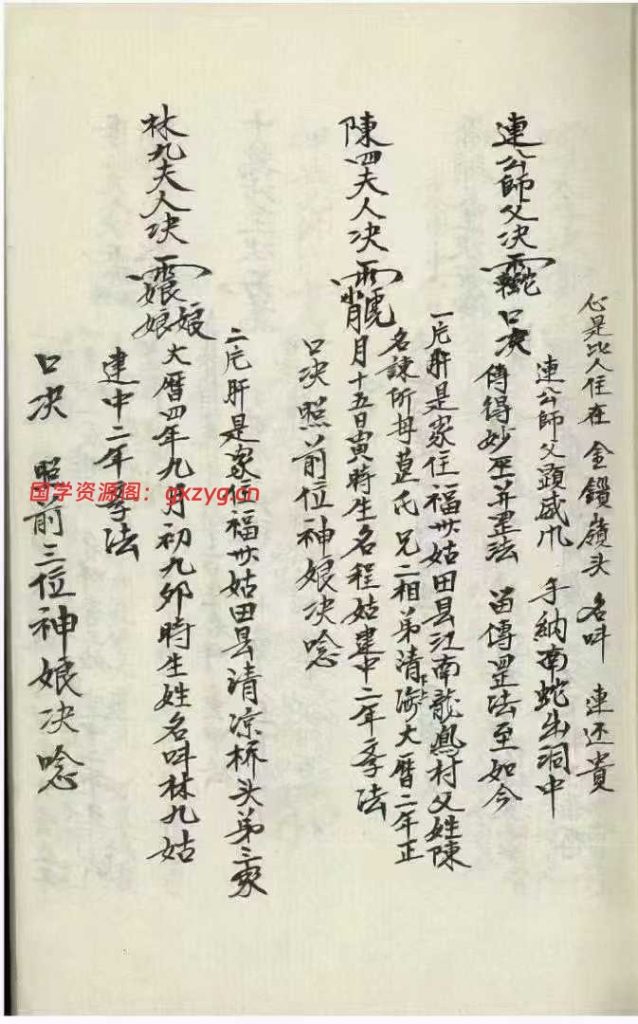 心是比人住在 金鎖嶺头 名叫 連还貴
連公師父决 口决
連公師父顕威爪 手納南蛇出洞中
傳得妙 罡法 苗傳罡法至如今
陳四夫人决
一 肝是家住福州姑田县江南龍鳳村父姓陳
名諫所 葛氏 兄二相弟清海大曆二年正
月十五日寅時生名程姑建中二年 法
口决照前位神娘决唸
林九夫人决 娘娘
二 肝是家住福州姑田县清凉桥头弟三家
大曆四年九月初九卯時生姓名叫林九姑
建中二年 法
口决 照前三位神娘决唸
国学资源阁：gxzyg.cn